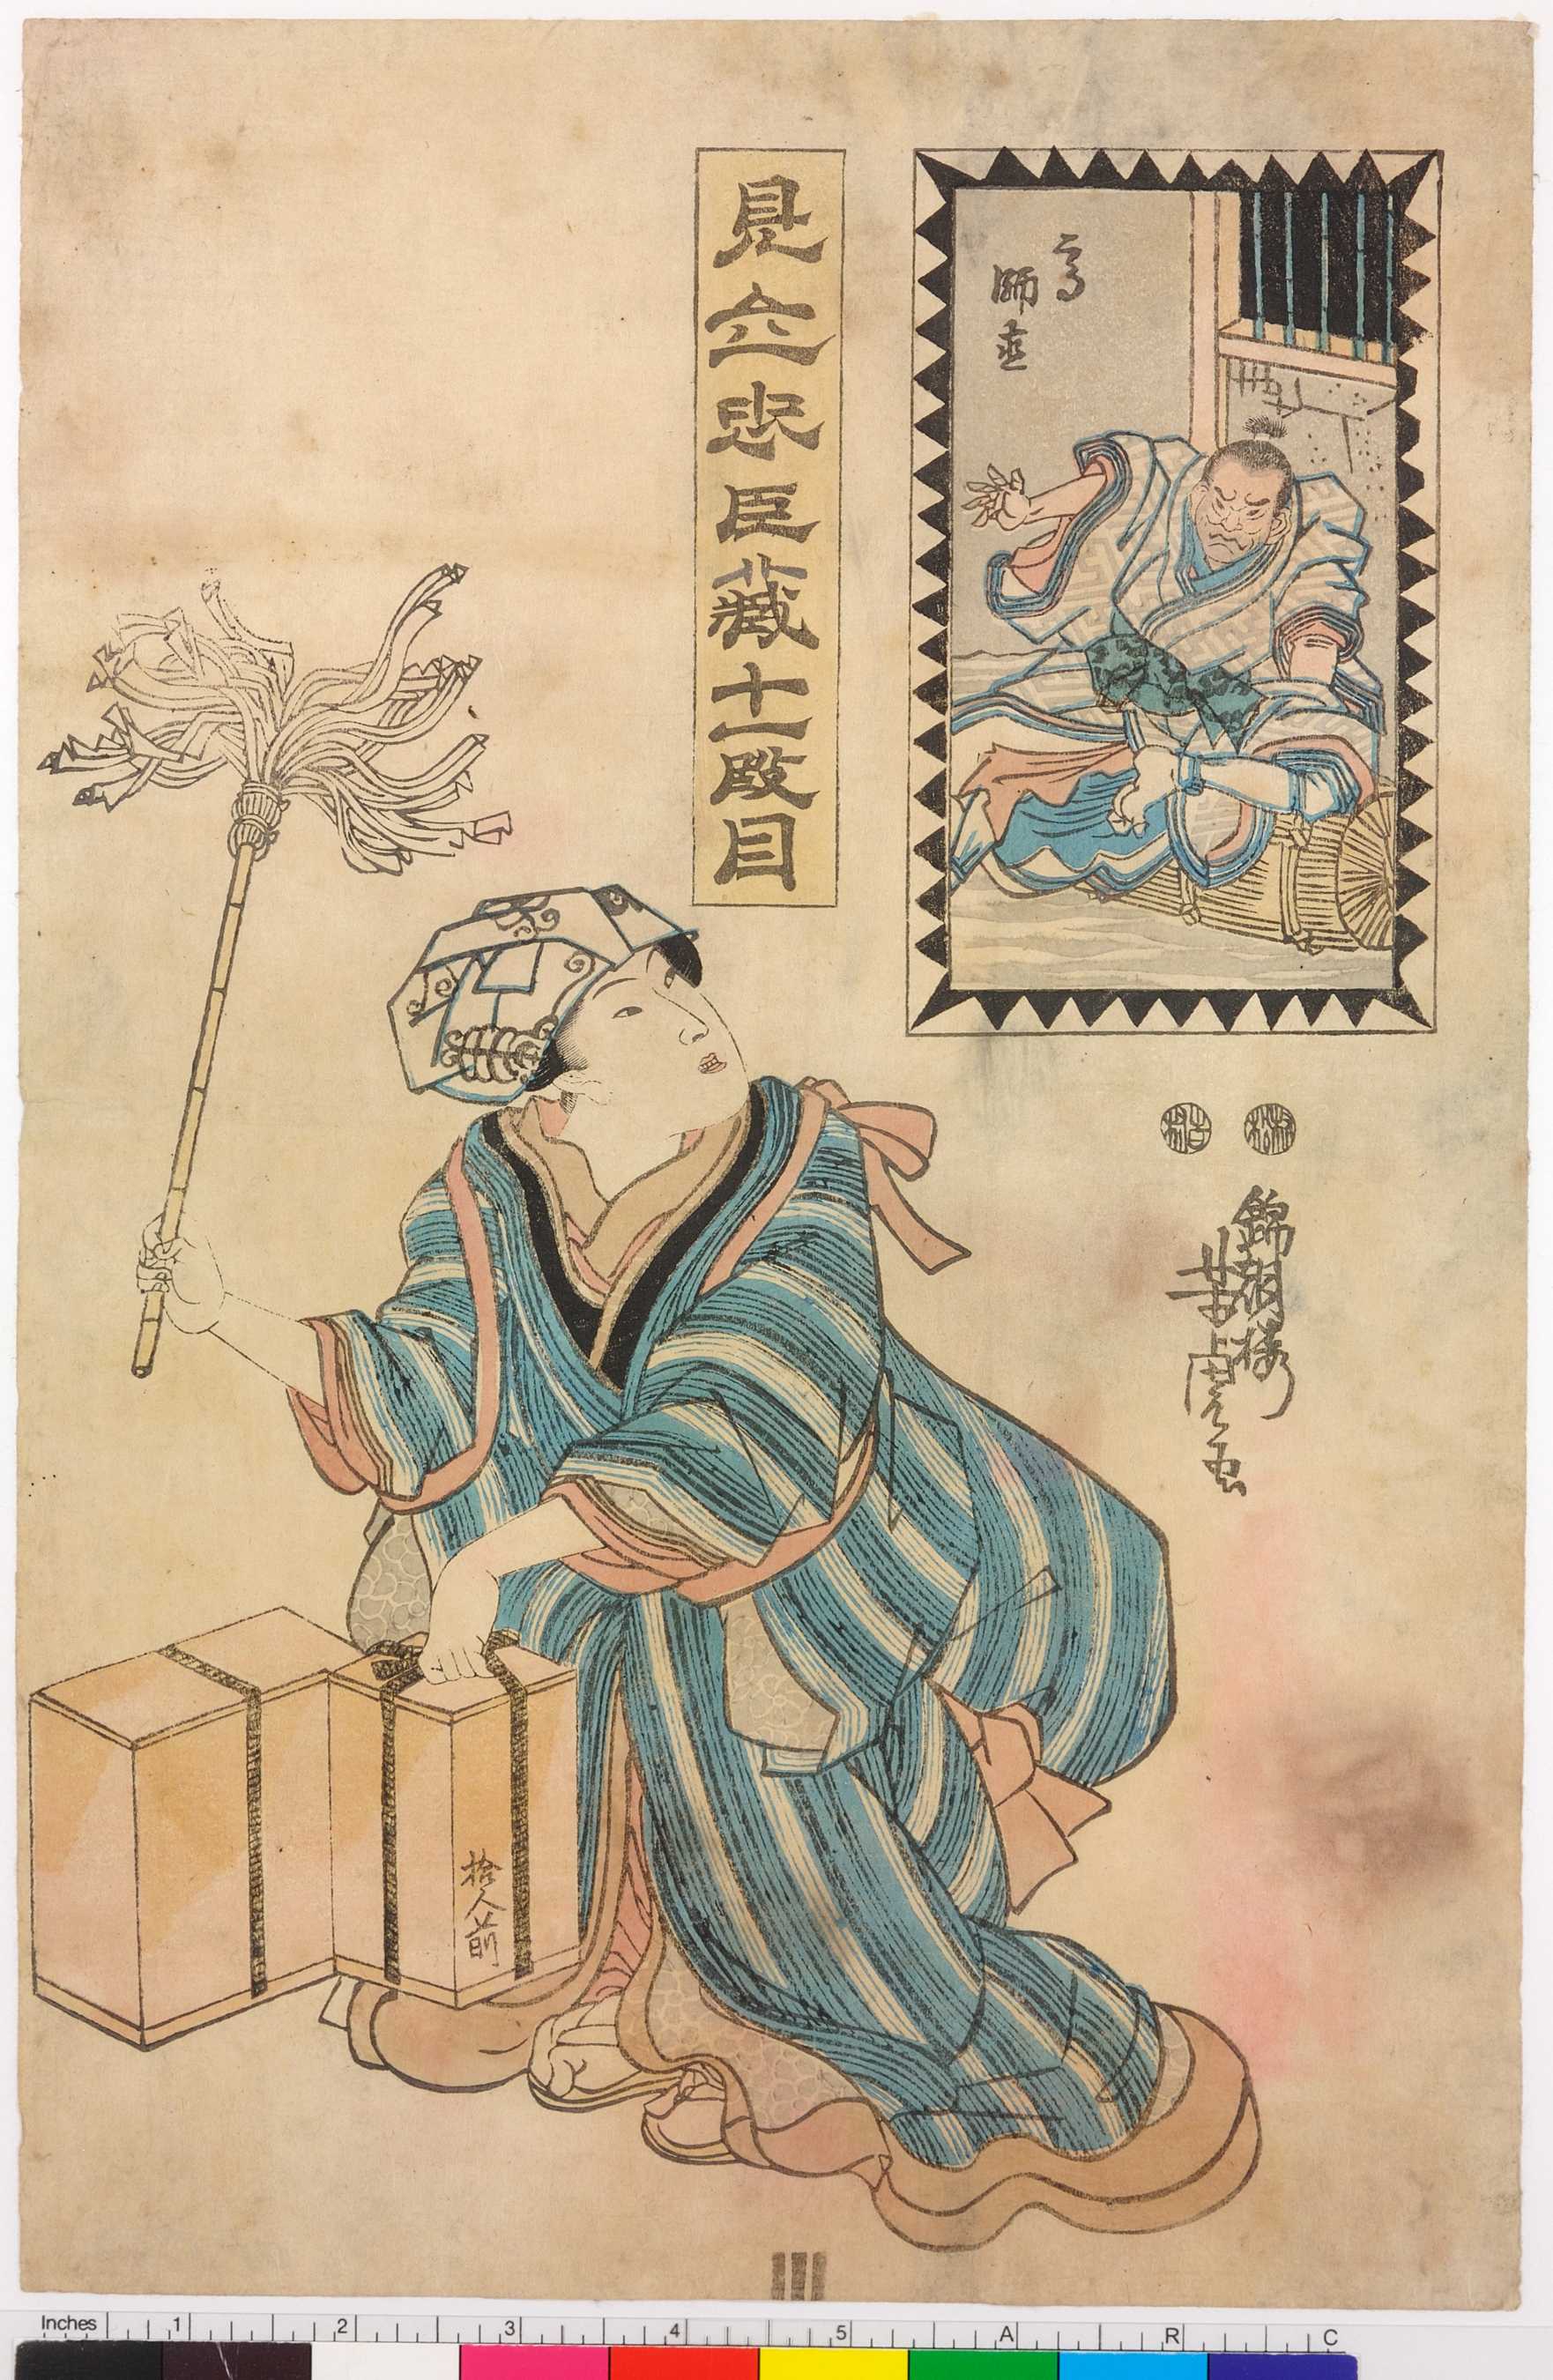 高
師直
見立忠臣蔵十一段目
錦朝楼
芳虎画
拾人前
Inches 1 2 3 4 5 A R C